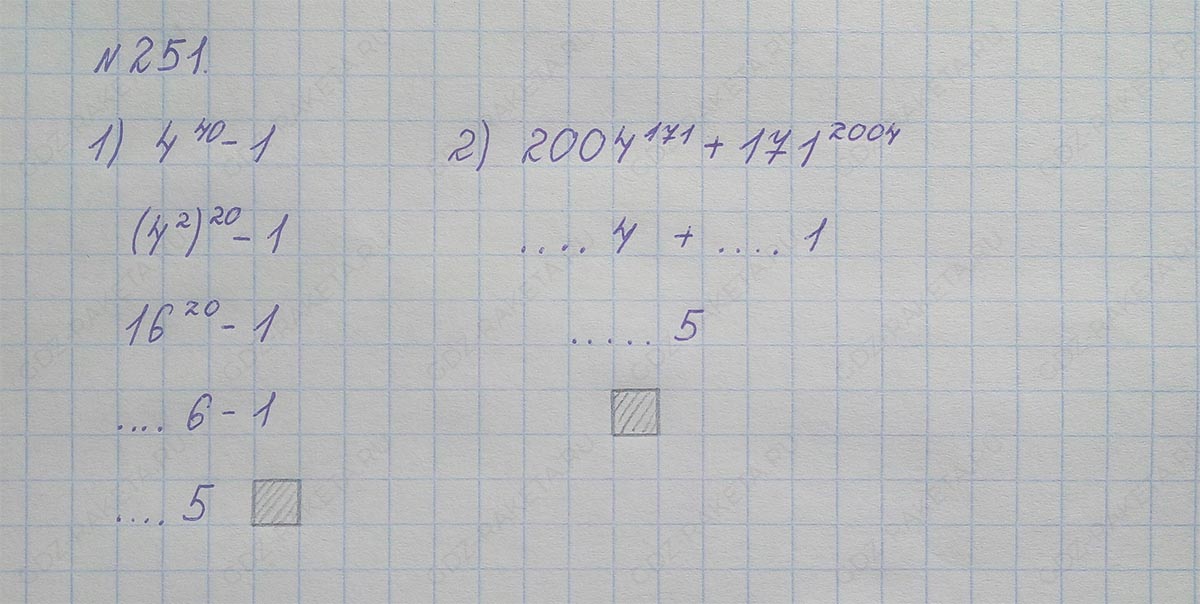 № 251.
1) 4^40 - 1
(4^2)^20 - 1
16^20 - 1
.... 6 - 1
.... 5
2) 2004^171 + 171^2004
.... 4 + .... 1
..... 5
GDZ-RAKETA.RU